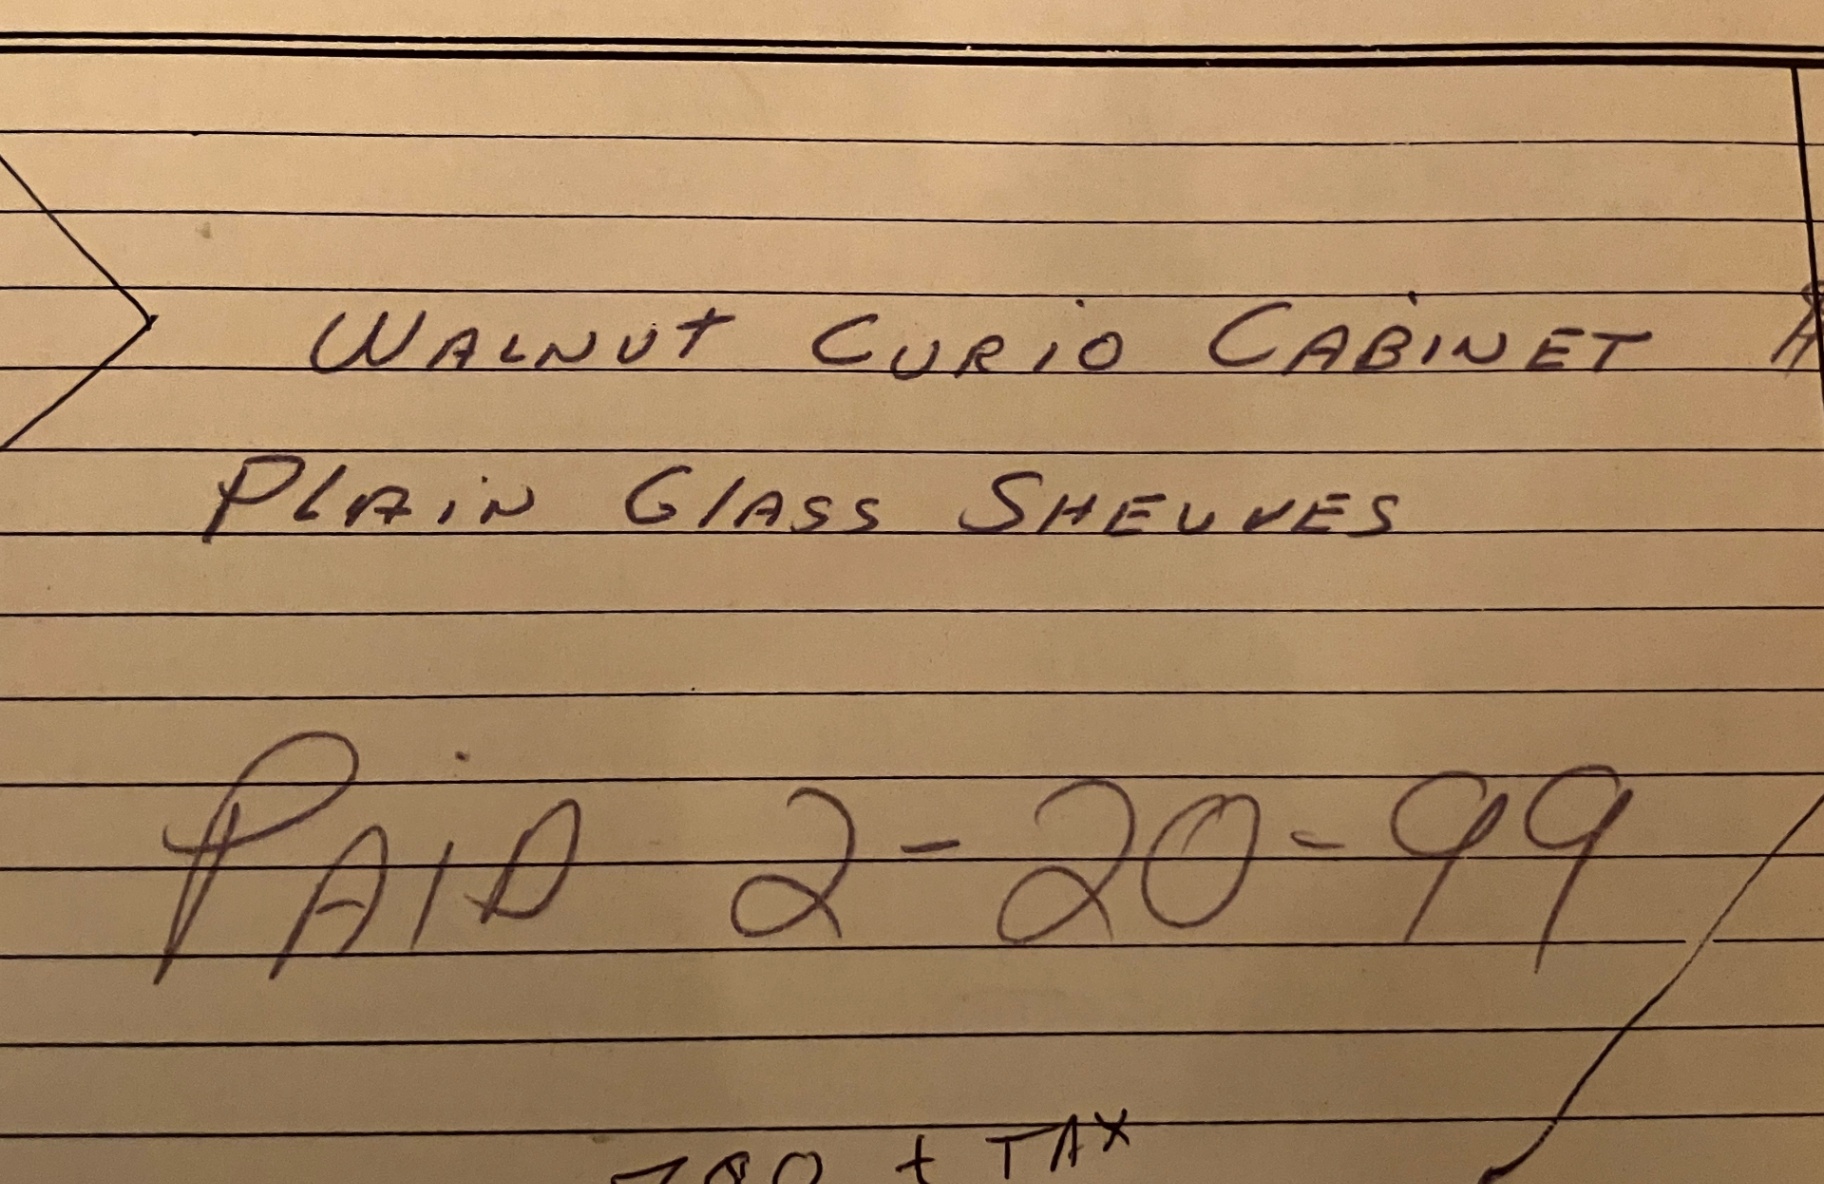 WALNUT CURIO CABINET
PLAIN GLASS SHELVES
PAID 2-20-99
+ TAX